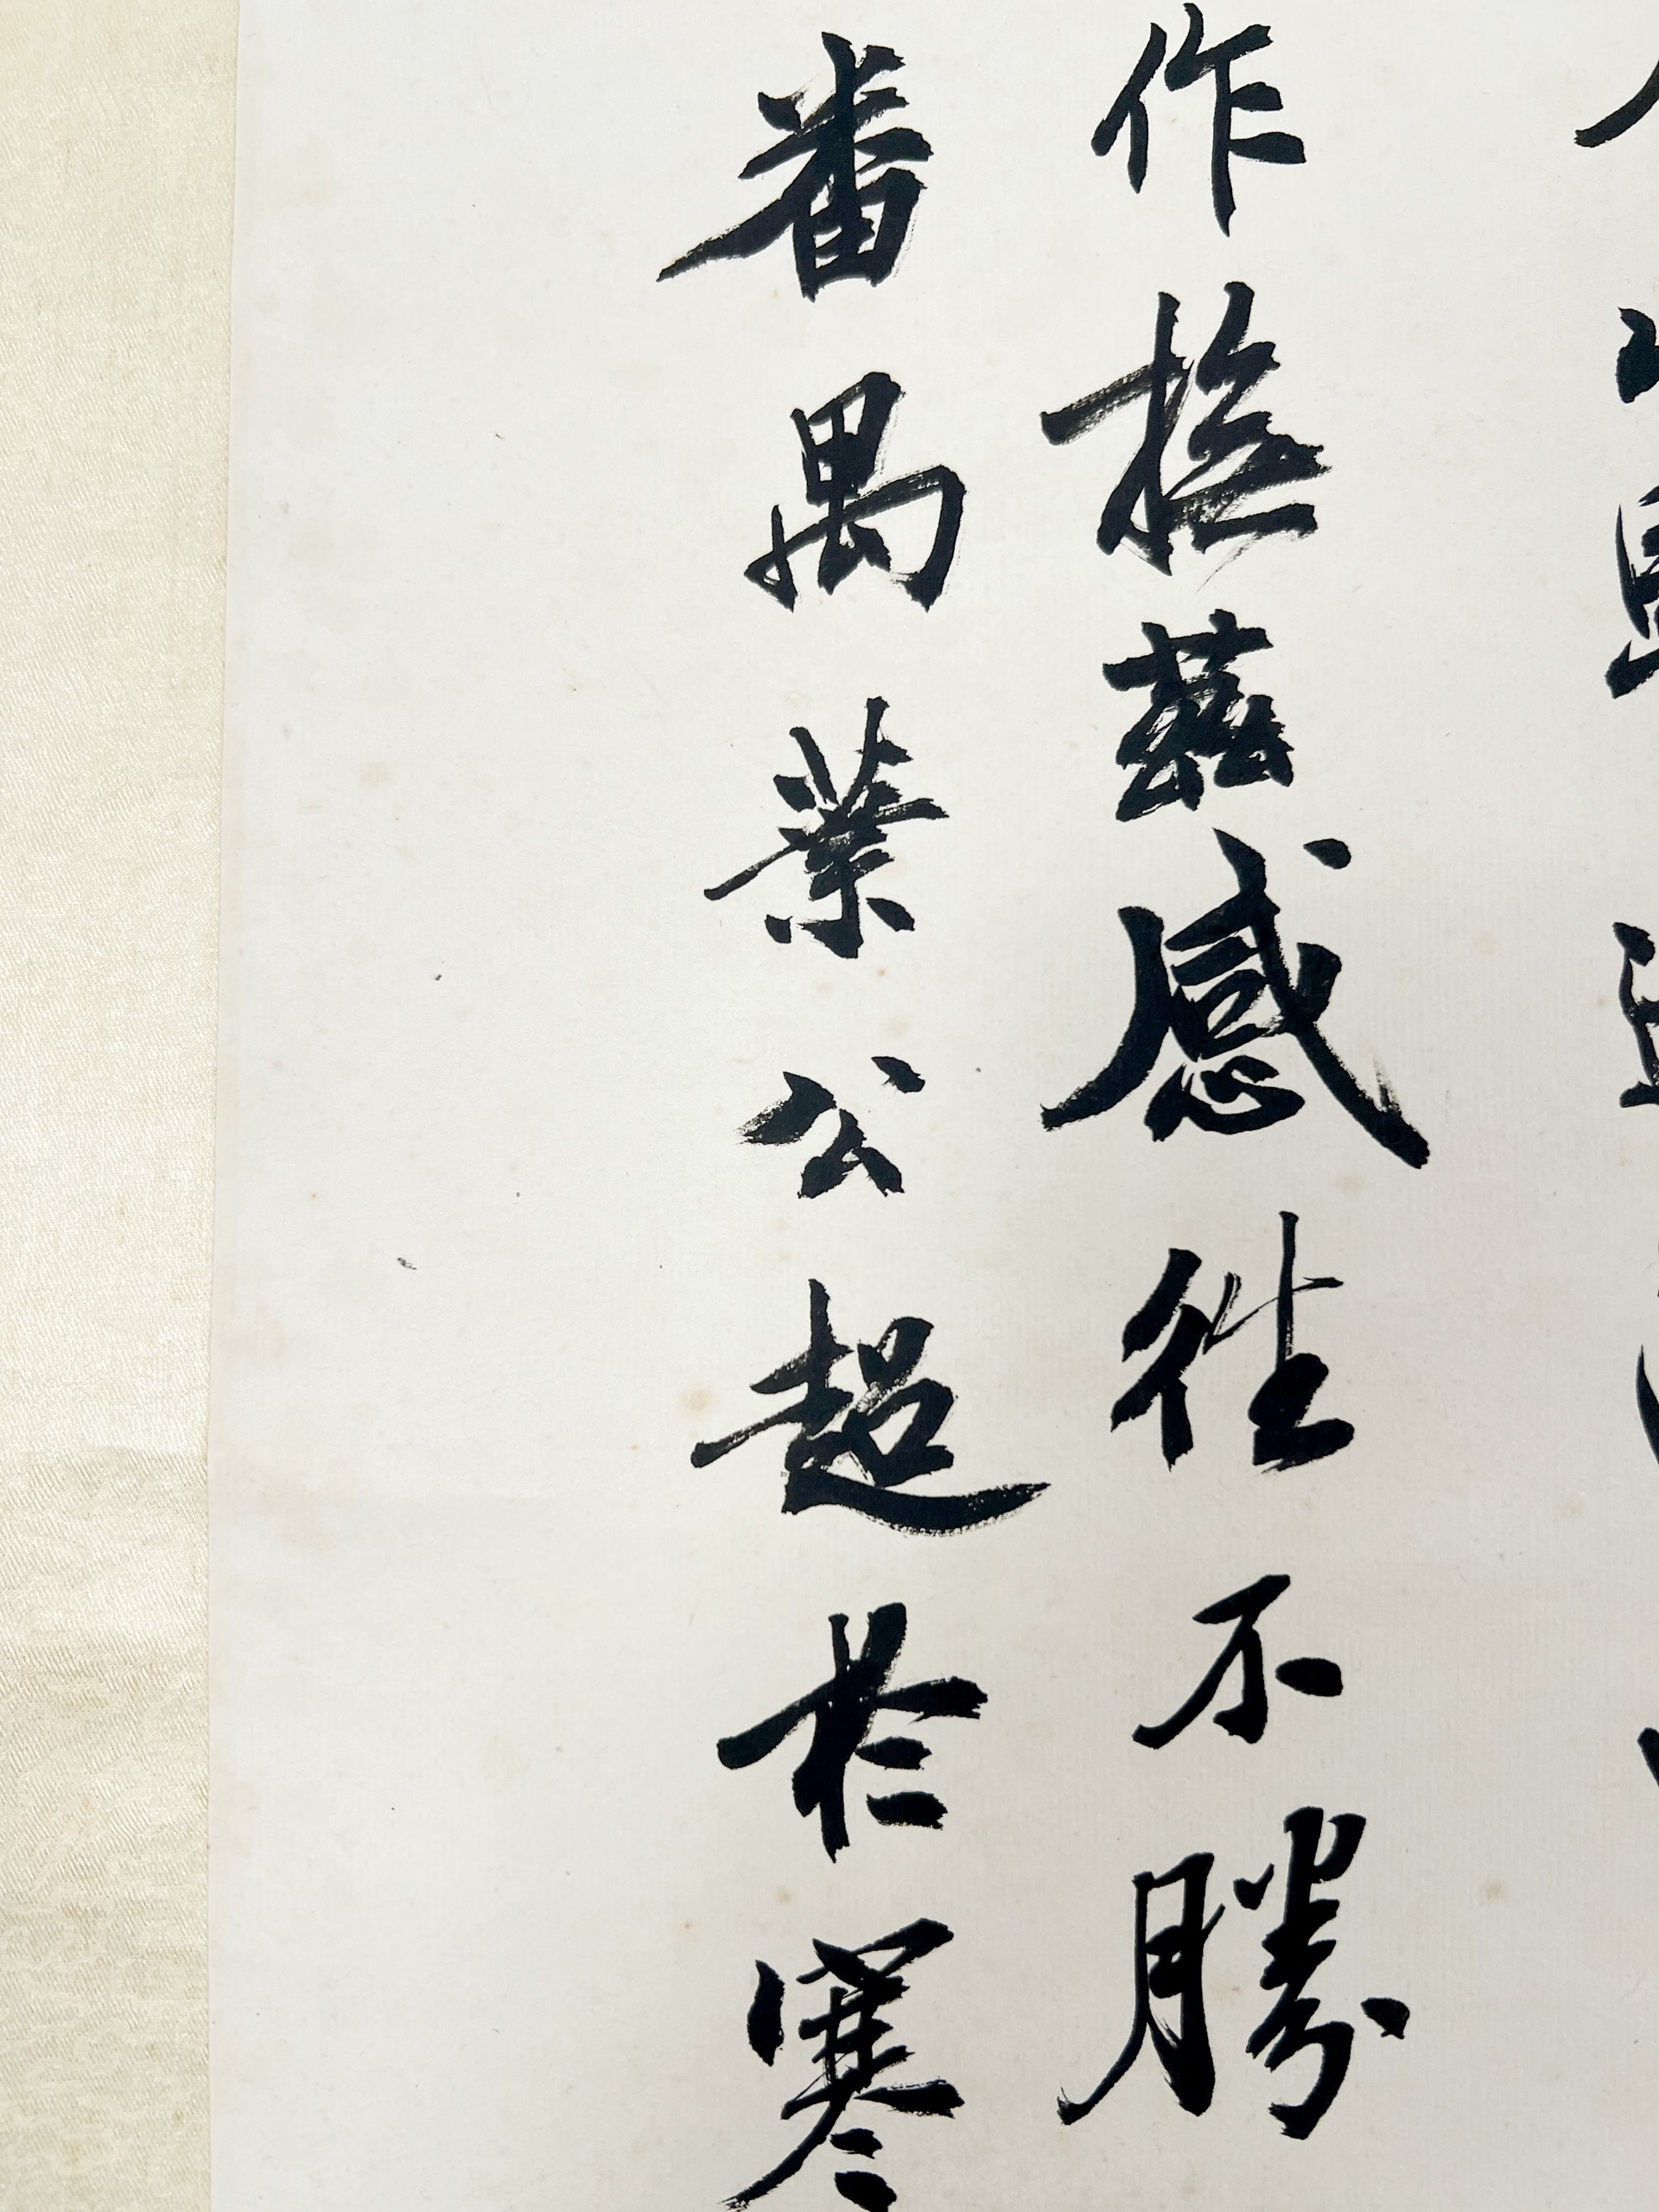 作撫茲感往不勝
番禺葉公超於寒